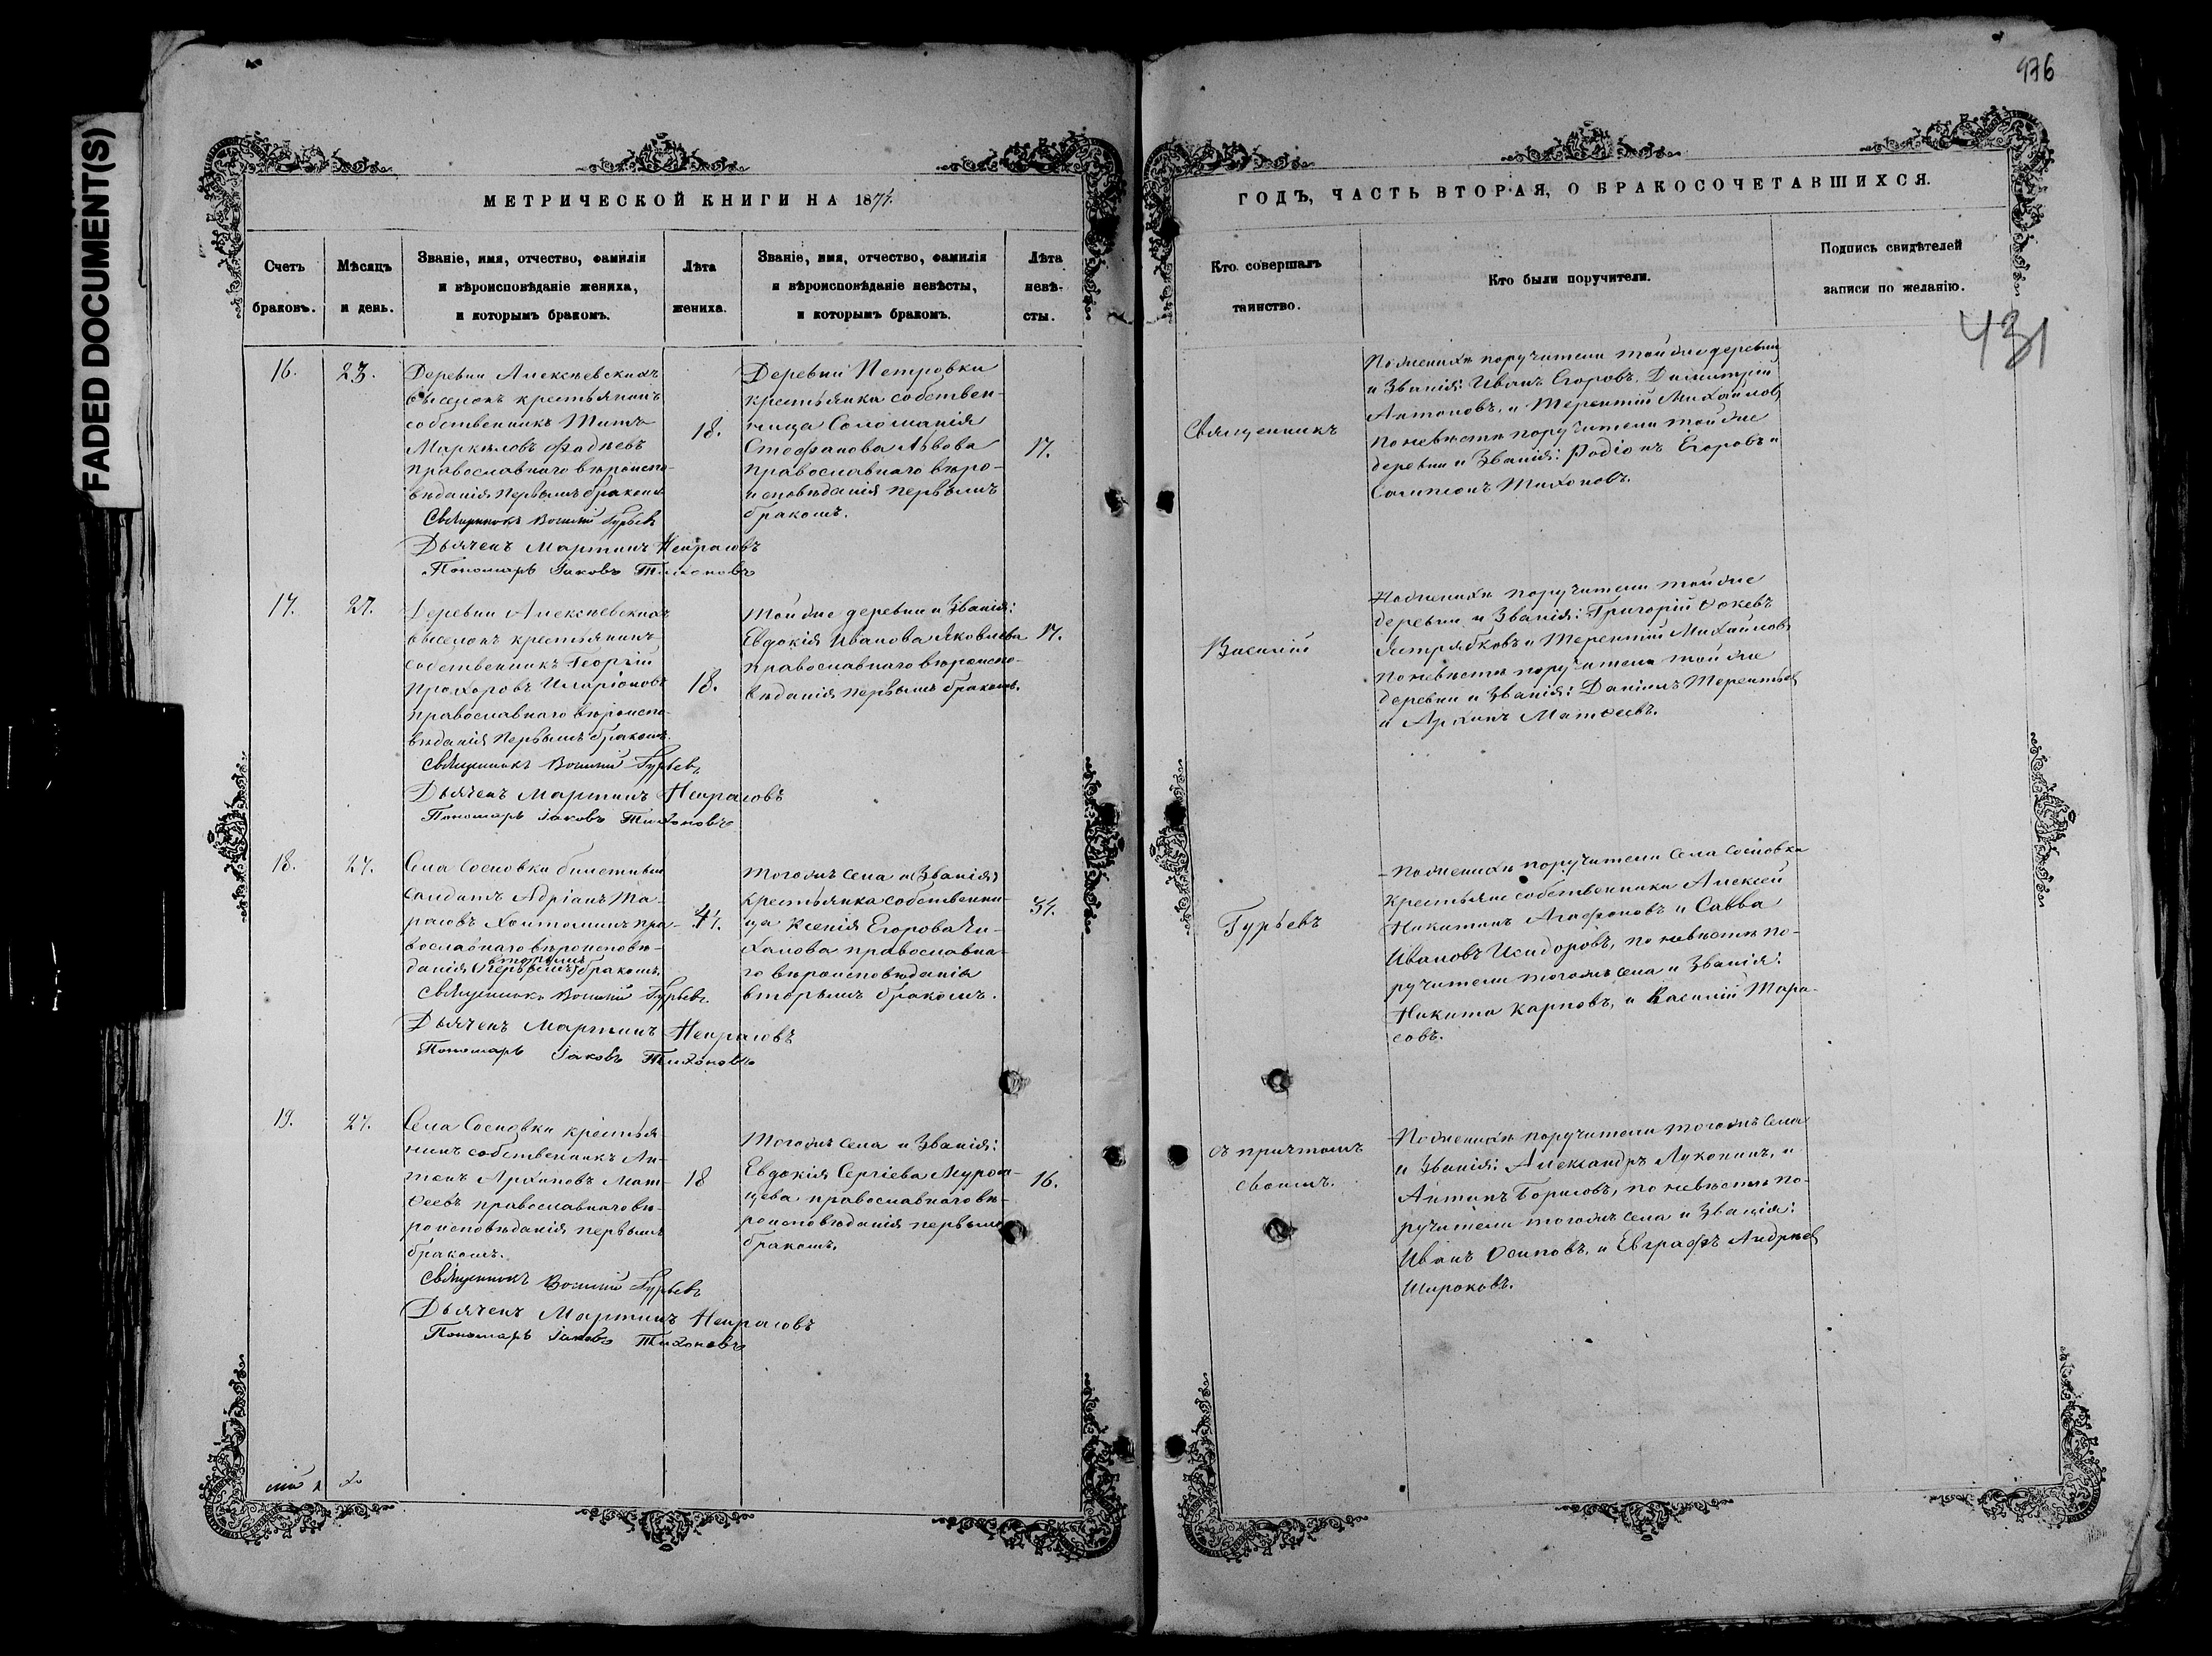 FADED DOCUMENT(S)
476
431
МЕТРИЧЕСКОЙ КНИГИ НА 1871
ГОДЪ, ЧАСТЬ ВТОРАЯ, О БРАКОСОЧЕТАВШИХСЯ.
Счетъ браковъ.
Мѣсяцъ и день.
Званіе, имя, отчество, фамилія
и вѣроисповѣданіе жениха,
и которымъ бракомъ.
Лѣта жениха.
Званіе, имя, отчество, фамилія
и вѣроисповѣданіе невѣсты,
и которымъ бракомъ.
Лѣта невѣ-
сты.
Кто совершалъ
таинство.
Кто были поручители.
Подпись свидѣтелей
записи по желанію.
16.
23.
Деревни Алексѣевскихъ
выселокъ крестьянинъ
собственникъ Титъ
Маркеловъ Фадѣевъ
православнаго вѣроиспо-
вѣданія первымъ бракомъ
Священникъ Василій Гурьевъ
Дьячекъ Мартинъ Некрасовъ
Пономарь Іаковъ Тихоновъ
18.
Деревни Петровки
крестьянка собствен-
ница Соломанія
Стефанова Львова
православнаго вѣро-
исповѣданія первымъ
бракомъ.
17.
Священникъ
По женихѣ поручители той же деревни
и званія: Иванъ Егоровъ, Димитрій
Антоновъ, и Терентій Михайловъ
по невѣстѣ поручители той же
деревни и званія: Родіонъ Егоровъ и
Самсонъ Тихоновъ.
17.
27.
Деревни Алексѣевскихъ
выселокъ крестьянинъ
собственникъ Георгій
Прохоровъ Иларіоновъ
православнаго вѣроиспо-
вѣданія первымъ бракомъ.
Священникъ Василій Гурьевъ
Дьячекъ Мартинъ Некрасовъ
Пономарь Іаковъ Тихоновъ
18.
Той же деревни и званія:
Евдокія Иванова Яковлева
православнаго вѣроиспо-
вѣданія первымъ бракомъ.
17.
Василій
По женихѣ поручители той же
деревни и званія: Григорій Фокевъ
Ястрябковъ и Терентій Михайловъ
по невѣстѣ поручители той же
деревни и званія: Даніилъ Терентьевъ
и Архипъ Матѳеевъ.
18.
27.
Села Сосновки билетный
солдатъ Адріанъ Та-
расовъ пра-
вославнаго вѣроисповѣ-
вторымъ
данія (первымъ) бракомъ.
Священникъ Василій Гурьевъ
Дьячекъ Мартинъ Некрасовъ
Пономарь Іаковъ Тихоновъ
47.
Тогожъ села и званія:
крестьянка собственни-
ца Ксенія Егорова Чи-
халова православна-
го вѣроисповѣданія
вторымъ бракомъ.
Гурьевъ
По женихѣ поручители села Сосновки
крестьяне собственники Алексѣй
Никитинъ Агафоновъ и Савва
Ивановъ Исидоровъ, по невѣстѣ по-
ручители тогожъ села и званія:
Никита Карповъ, и Василій Тара-
совъ.
19.
27.
Села Сосновки крестья-
нинъ собственникъ Ан-
тонъ Архиповъ Мат-
ѳеевъ православнаго вѣ-
роисповѣданія первымъ
бракомъ.
Священникъ Василій Гурьевъ
Дьячекъ Мартинъ Некрасовъ
Пономарь Іаковъ Тихоновъ
18
Тогожъ села и званія:
Евдокія Сергіева Муром-
цева православнаго вѣ-
роисповѣданія первымъ
бракомъ.
16.
съ причтомъ
своимъ.
По женихѣ поручители тогожъ села
и званія: Александръ Луконинъ, и
Антонъ Борисовъ, по невѣстѣ по-
ручители тогожъ села и званія:
Иванъ Осиповъ, и Евграфъ Андреевъ
Широковъ.